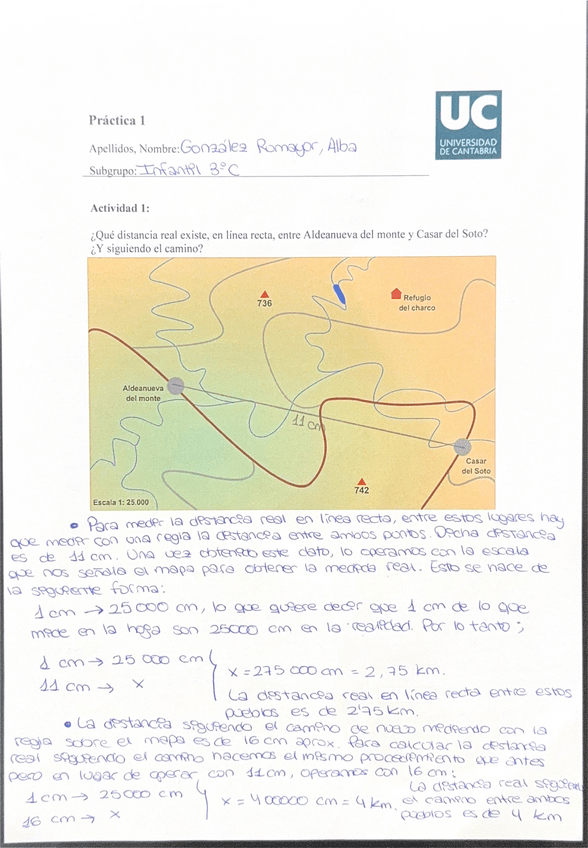 UC
UNIVERSIDAD
DE CANTABRIA
Práctica 1
Apellidos, Nombre: González Romayor, Alba
Subgrupo: Infantil 3ºC
Actividad 1:
¿Qué distancia real existe, en línea recta, entre Aldeanueva del monte y Casar del Soto?
¿Y siguiendo el camino?
736
Refugio
del charco
Aldeanueva
del monte
11 cm
Casar
del Soto
742
Escala 1: 25.000
• Para medir la distancia real en línea recta, entre estos lugares hay
que medir con una regla la distancia entre ambos puntos. Dicha distancia
es de 11 cm. Una vez obtenido este dato, lo operamos con la escala
que nos señala el mapa para obtener la medida real. Esto se hace de
la siguiente forma:
1 cm → 25000 cm, lo que quiere decir que 1 cm de lo que
mide en la hoja son 25000 cm en la realidad. Por lo tanto;
1 cm → 25 000 cm
11 cm → x
x = 275 000 cm = 2,75 km.
La distancia real en línea recta entre estos
pueblos es de 2'75 km.
• La distancia siguiendo el camino de nuevo midiendo con la
regla sobre el mapa es de 16 cm aprox. Para calcular la distancia
real siguiendo el camino hacemos el mismo procedimiento que antes
pero en lugar de operar con 11 cm, operamos con 16 cm:
1 cm → 25000 cm
16 cm → x
x = 400000 cm = 4 km.
La distancia real siguiendo
el camino entre ambos
pueblos es de 4 km